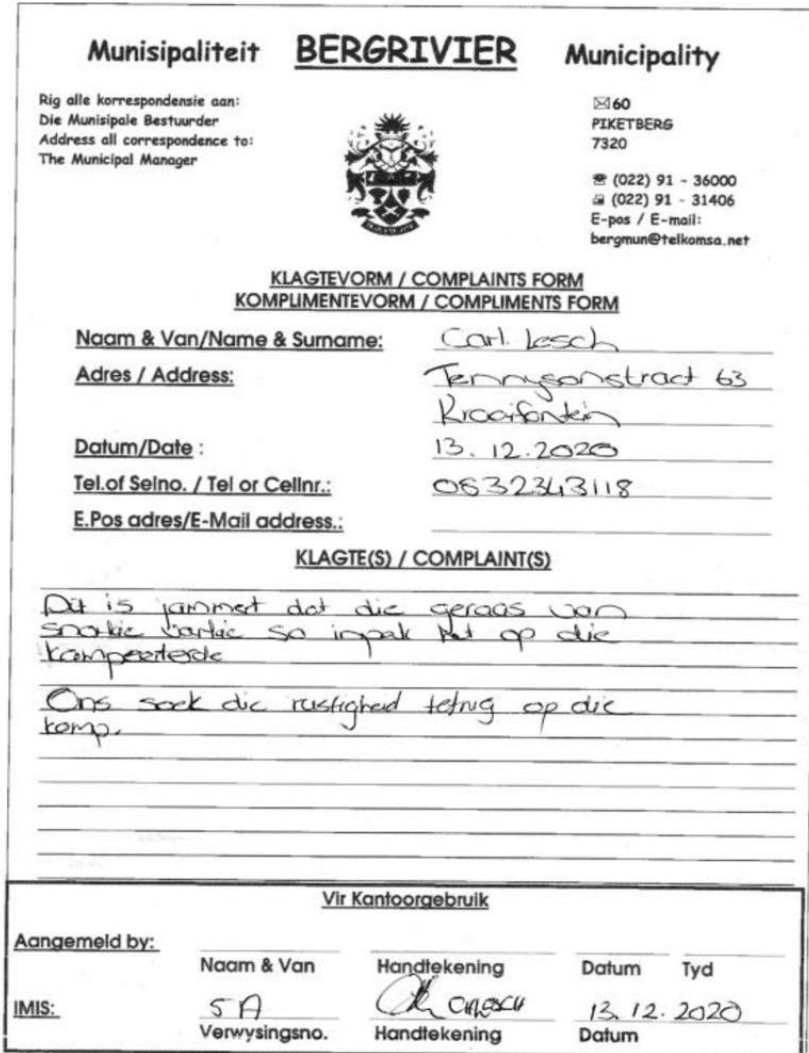 Munisipaliteit BERGRIVIER Municipality
Rig alle korrespondensie aan:
Die Munisipale Bestuurder
Address all correspondence to:
The Municipal Manager
✉60
PIKETBERG
7320
☎ (022) 91 - 36000
(022) 91 - 31406
E-pos / E-mail:
bergmun@telkomsa.net
KLAGTEVORM / COMPLAINTS FORM
KOMPLIMENTEVORM / COMPLIMENTS FORM
Naam & Van/Name & Surname: Carl. Lesch
Adres / Address: Tennysonstraat 63
Kraaifontein
Datum/Date : 13.12.2020
Tel.of Selno. / Tel or Cellnr.: 0632343118
E.Pos adres/E-Mail address.:
KLAGTE(S) / COMPLAINT(S)
Dit is jammer dat die geraas van
snorkie varkie so impak het op die
kampeerterde
Ons soek die rustigheid terug op die
kamp.
Vir Kantoorgebruik
Aangemeld by:
Naam & Van Handtekening Datum Tyd
IMIS: 5A CHLESCH 13.12.2020
Verwysingsno. Handtekening Datum